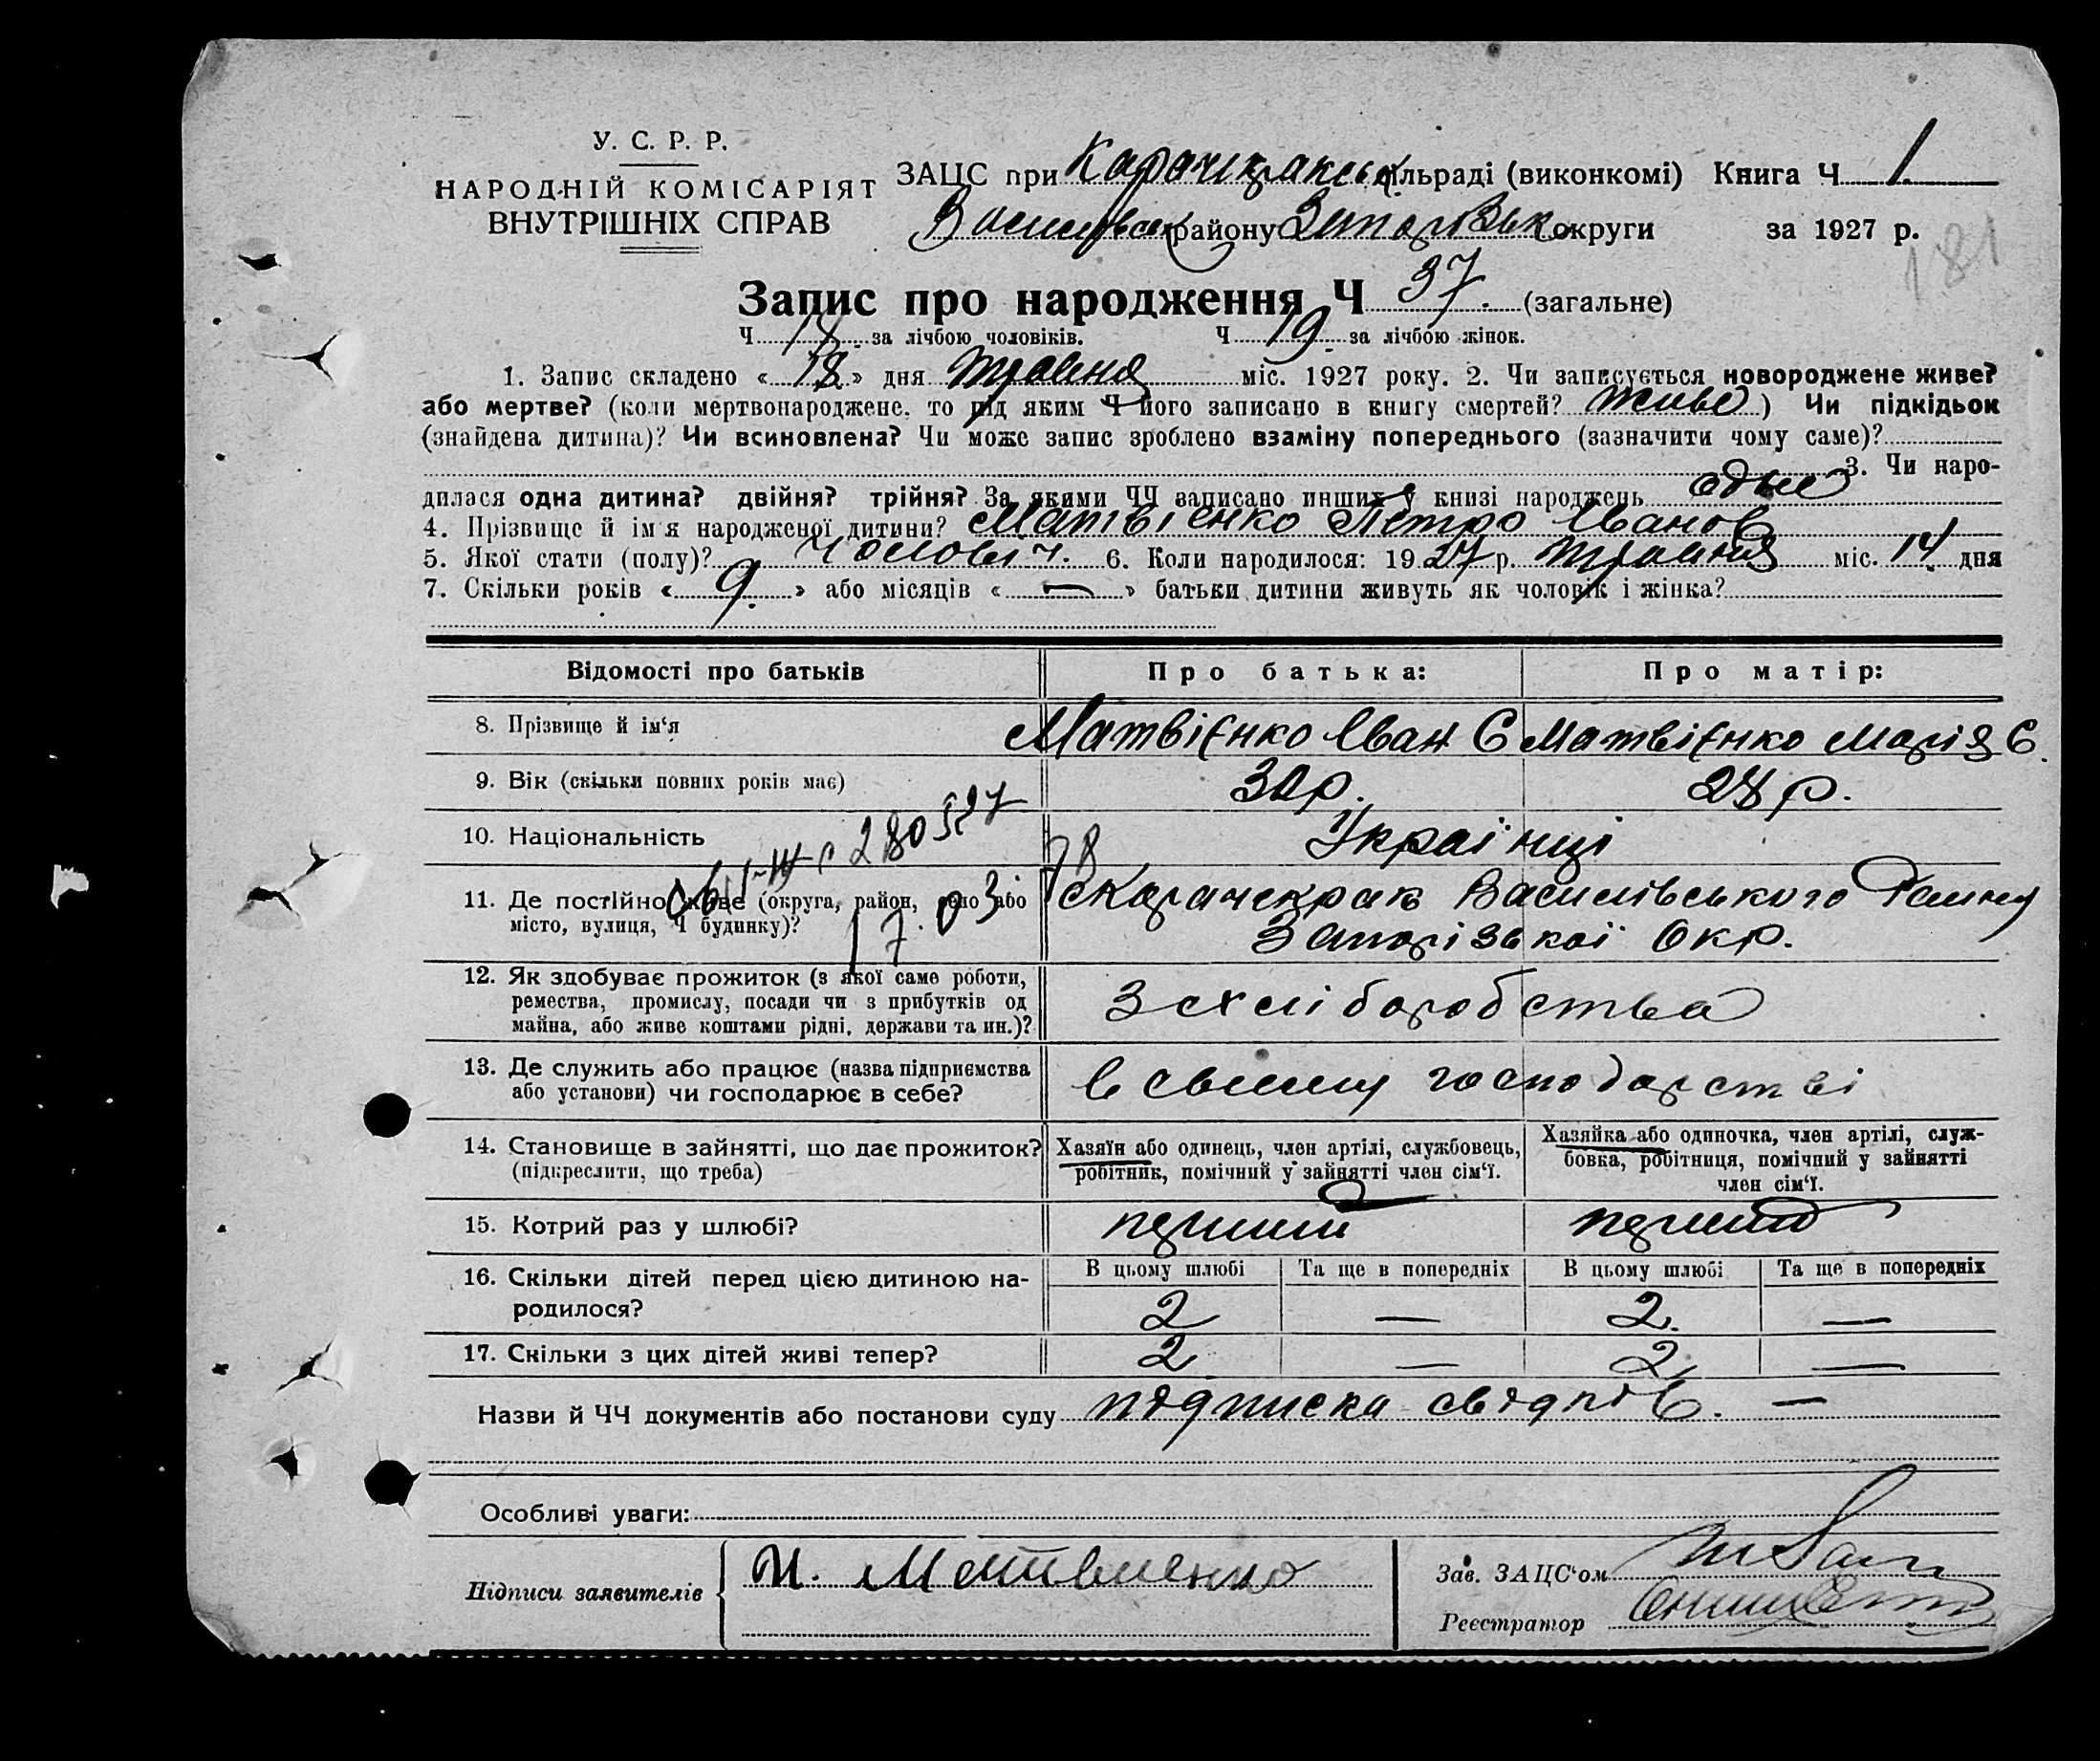 У. С. Р. Р.
НАРОДНІЙ КОМІСАРІЯТ
ВНУТРІШНІХ СПРАВ
ЗАЦС при Карачекракськ. сільраді (виконкомі) Книга Ч 1.
Василівськ. району Запорізьк. округи за 1927 р.
181
Запис про народження Ч 37. (загальне)
Ч 18. за лічбою чоловіків. Ч 19. за лічбою жінок.
1. Запис складено « 18 » дня травня міс. 1927 року. 2. Чи записується новороджене живе?
або мертве? (коли мертвонароджене, то під яким Ч його записано в книгу смертей? живе ) Чи підкідьок
(знайдена дитина)? Чи всиновлена? Чи може запис зроблено взаміну попереднього (зазначити чому саме)?
3. Чи наро-
дилася одна дитина? двійня? трійня? За якими ЧЧ записано инших у книзі народжень одне
4. Прізвище й ім'я народженої дитини? Матвієнко Петро Іванов
5. Якої стати (полу)? чоловіч. 6. Коли народилося: 1927 р. травня міс. 14 дня
7. Скільки років « 9. » або місяців « — » батьки дитини живуть як чоловік і жінка?
Відомості про батьків Про батька: Про матір:
8. Прізвище й ім'я Матвієнко Іван Є Матвієнко Марія Є.
9. Вік (скільки повних років має) 30р. 28 р.
10. Національність Українці
11. Де постійно живе (округа, район, село або с Карачекрак Василівського Району
місто, вулиця, Ч будинку)? Запорізької Окр.
12. Як здобуває прожиток (з якої саме роботи,
ремества, промислу, посади чи з прибутків од З схліборобства
майна, або живе коштами рідні, держави та ин.)?
13. Де служить або працює (назва підприємства в своєму господарстві
або установи) чи господарює в себе?
14. Становище в зайнятті, що дає прожиток? Хазяїн або одинець, член артілі, службовець, Хазяйка або одиночка, член артілі, служ-
(підкреслити, що треба) робітник, помічний у зайнятті член сім'ї. бовка, робітниця, помічний у зайнятті
член сім'ї.
15. Котрий раз у шлюбі? перший перший
16. Скільки дітей перед цією дитиною на- В цьому шлюбі Та ще в попередніх В цьому шлюбі Та ще в попередніх
родилося? 2 — 2. —
17. Скільки з цих дітей живі тепер? 2 — 2 —
Назви й ЧЧ документів або постанови суду підписка свідків. —
Особливі уваги:
Підписи заявителів И. Матвиенко
Зав. ЗАЦС'ом
Реєстратор